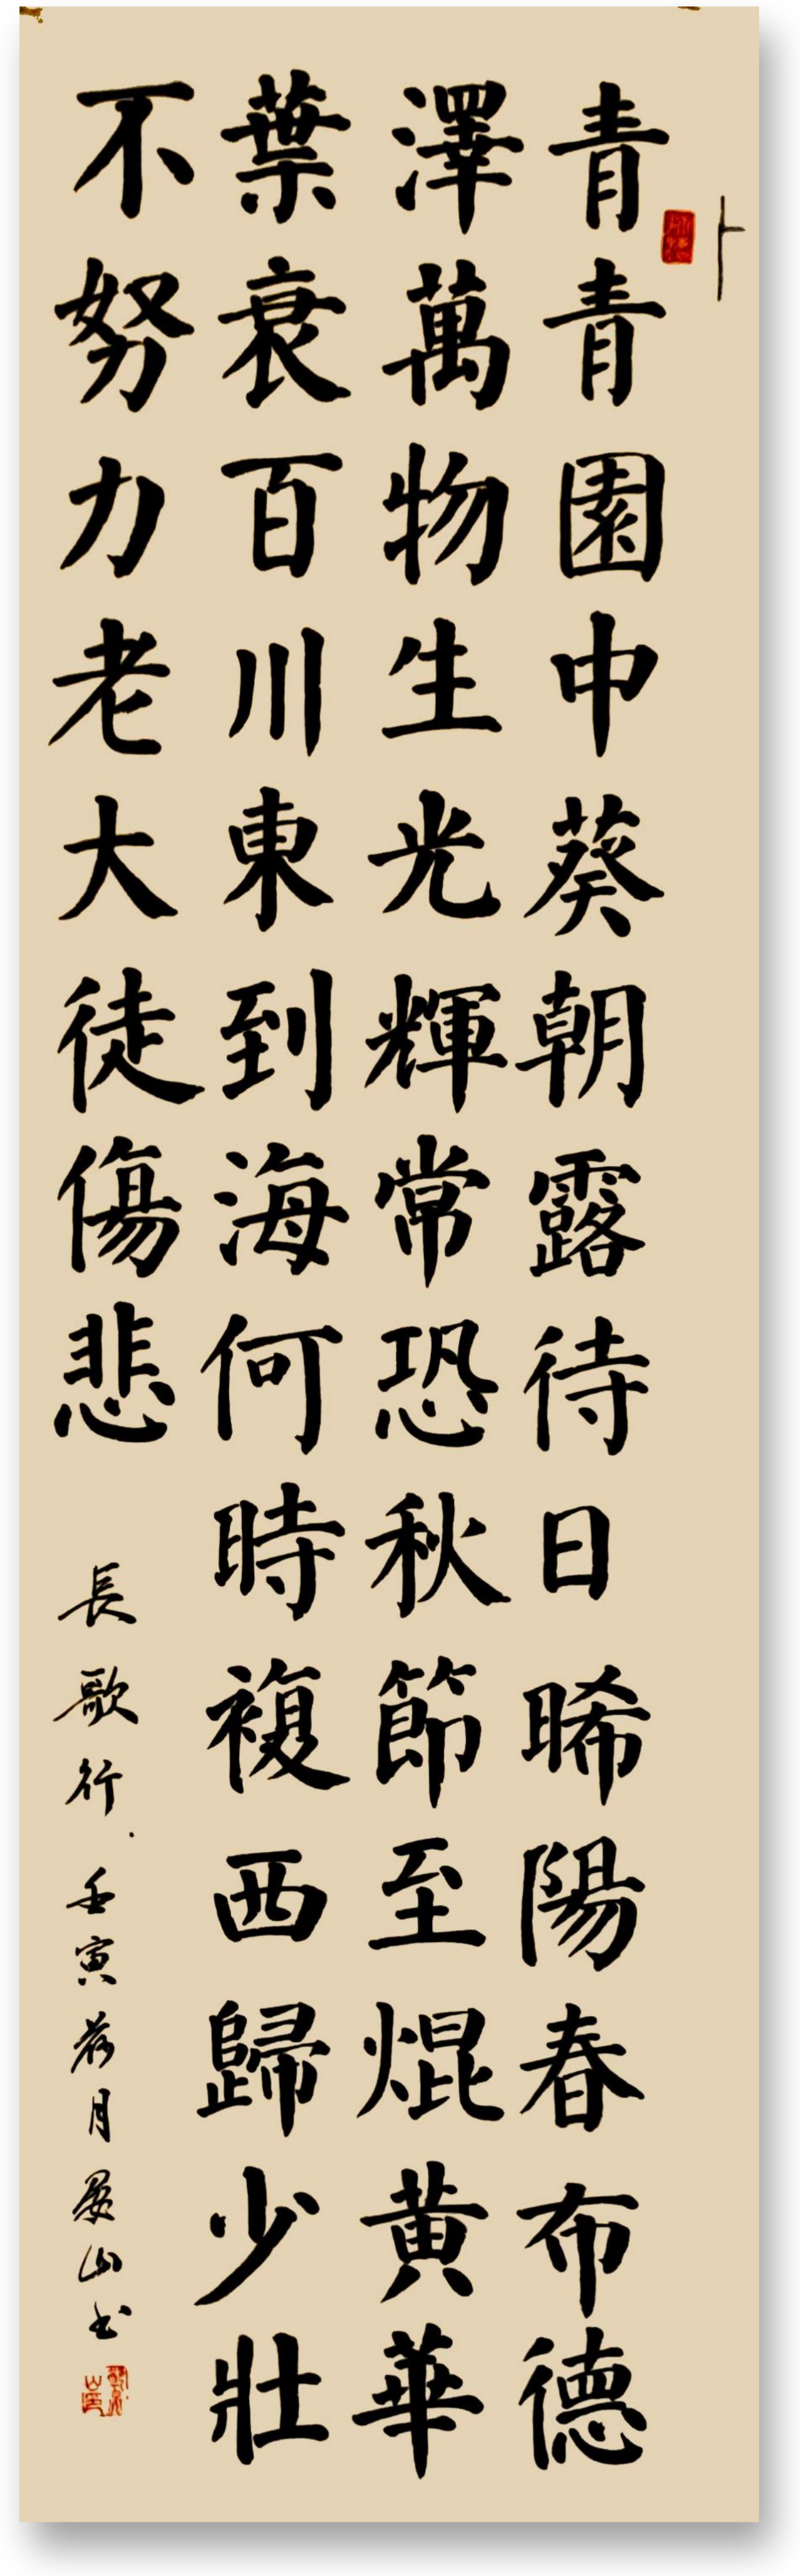 卜
青青園中葵朝露待日晞陽春布德
澤萬物生光輝常恐秋節至焜黃華
葉衰百川東到海何時複西歸少壯
不努力老大徒傷悲
長歌行.壬寅荷月晏山书